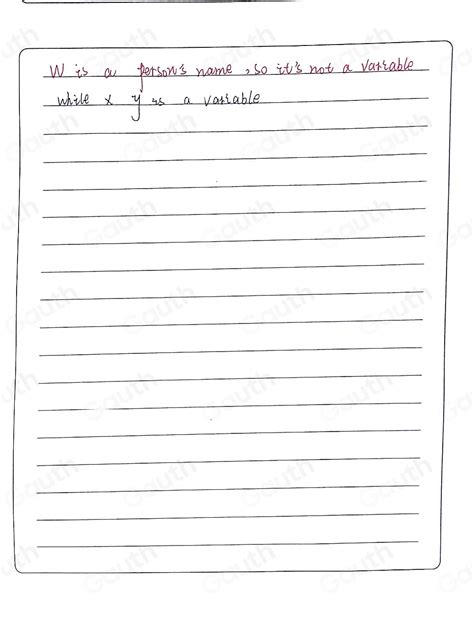 W is a person's name, so it's not a variable
while x y is a variable